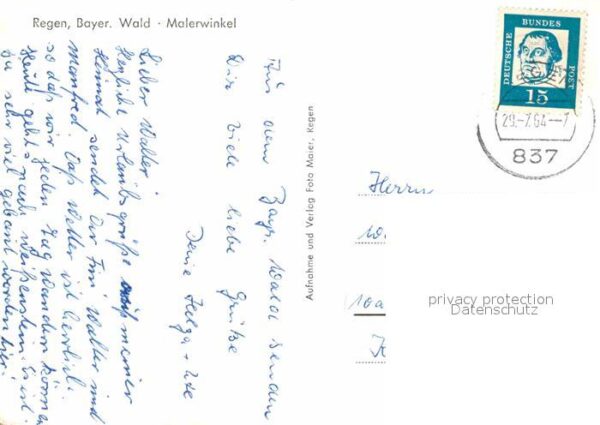 Regen, Bayer. Wald · Malerwinkel
Lieber Walter!
Herzliche Urlaubsgrüße aus meiner
Heimat sendet Dir Fini, Walter und
Manfred. Das Wetter ist herrlich
so daß wir jeden Tag wandern können.
Heute geht's nach Weißenstein. Es ist
ja sehr viel gebaut worden hier!
Aus dem Bayr. Wald senden
Dir viele liebe Grüße
Deine Helga + Ute
Aufnahme und Verlag Foto Maier, Regen
DEUTSCHE BUNDES POST
15
29.-7.64--7
837
Herrn
W.
10a
privacy protection
Datenschutz